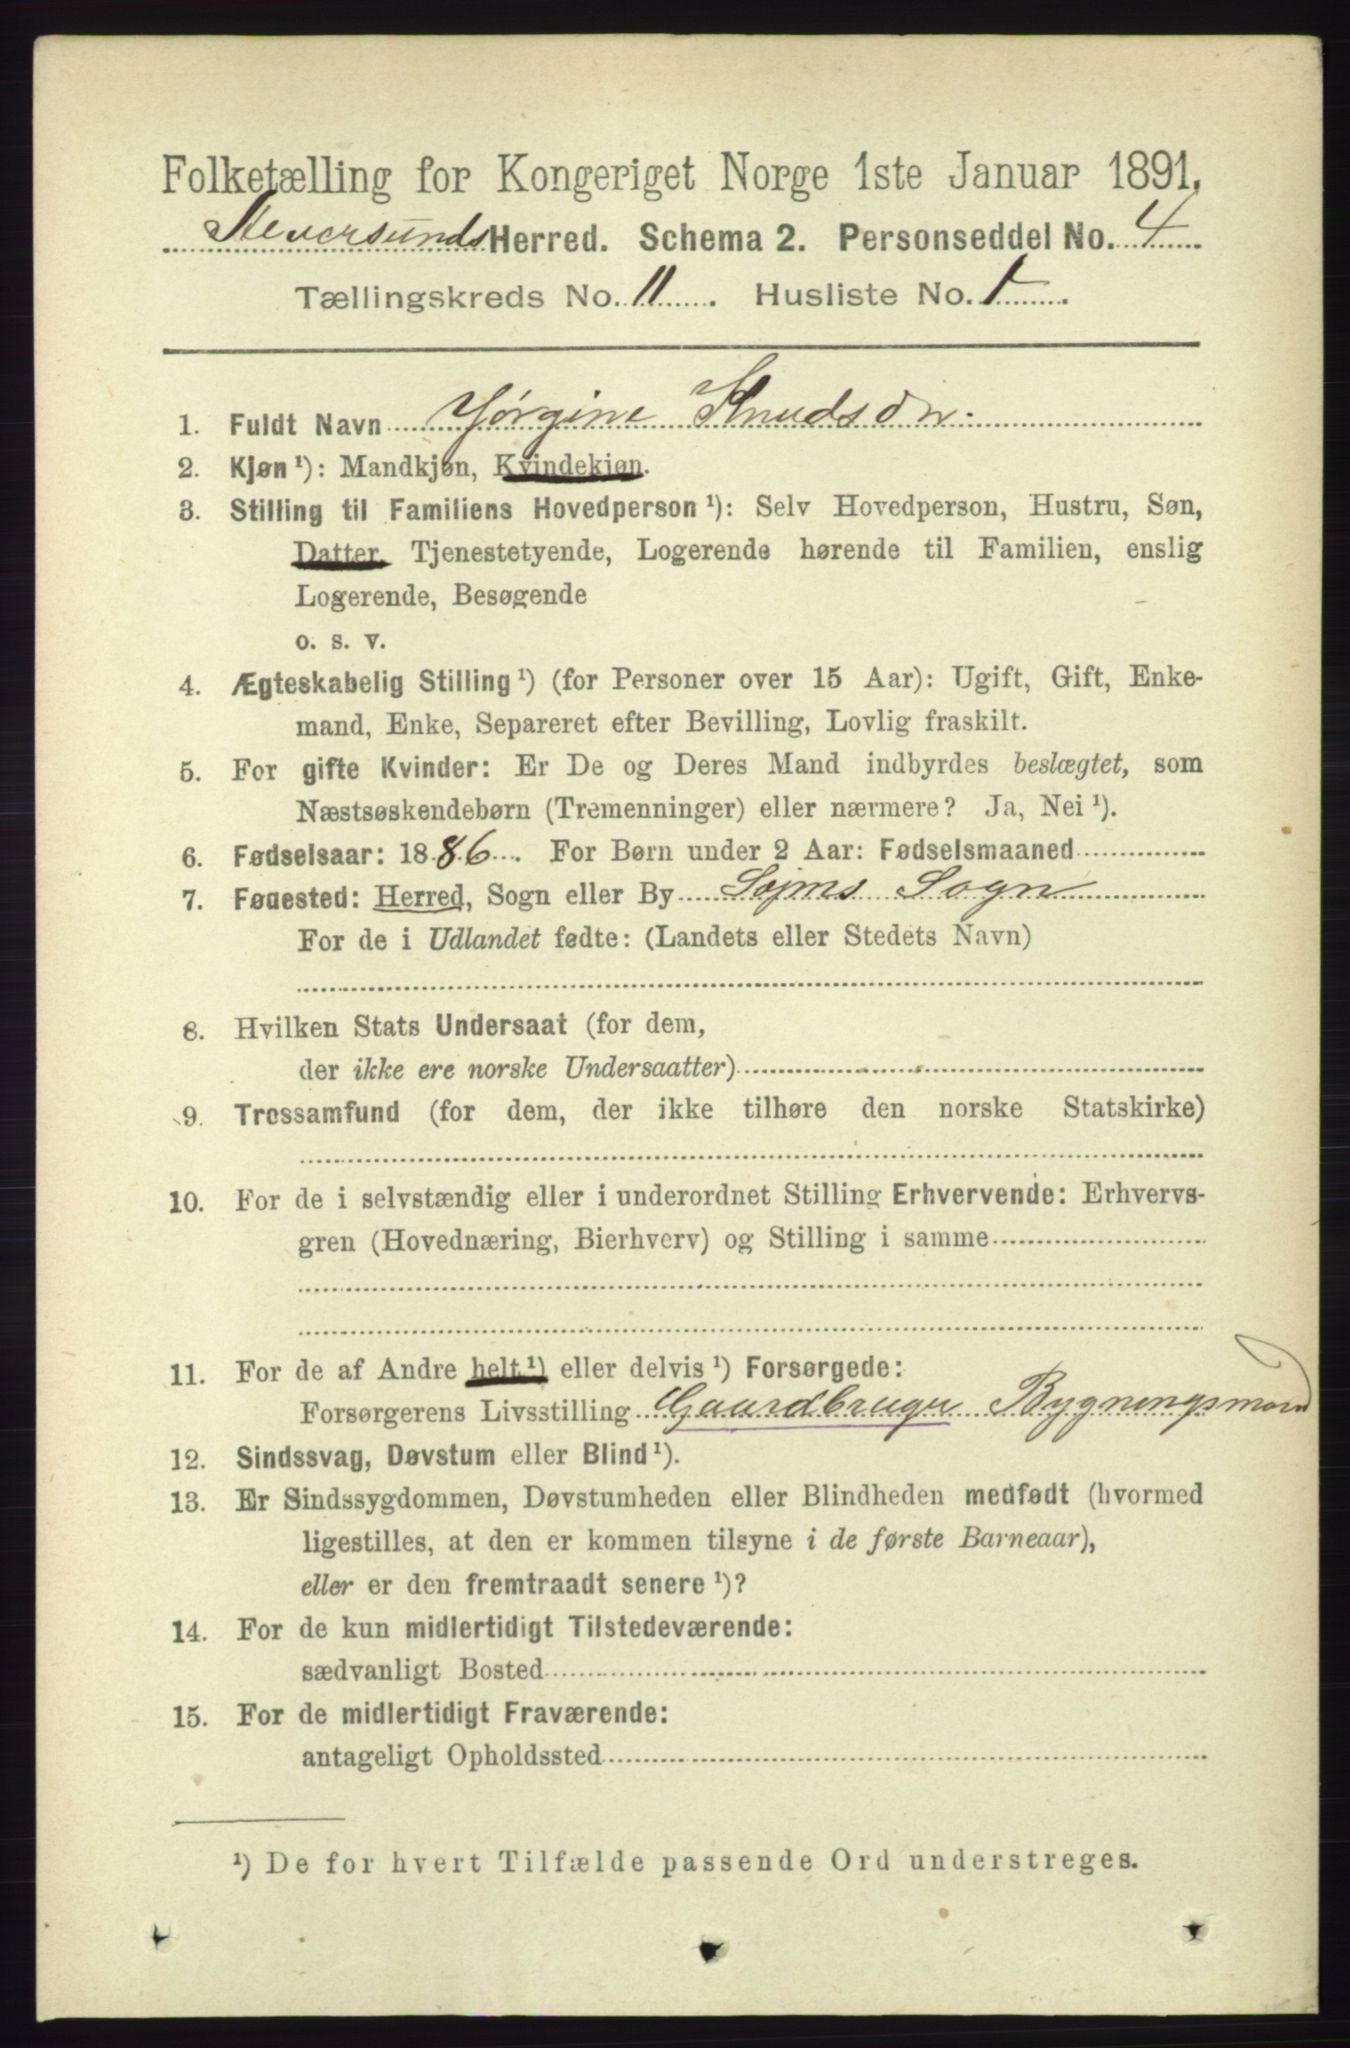 Folketælling for Kongeriget Norge 1ste Januar 1891.
Herred. Schema 2. Personseddel No. 4
Tællingskreds No. 11. Husliste No. 1.
1. Fuldt Navn Jørgine Knudsdn.
2. Kjøn ¹): Mandkjøn, Kvindekjøn.
3. Stilling til Familiens Hovedperson ¹): Selv Hovedperson, Hustru, Søn,
Datter, Tjenestetyende, Logerende hørende til Familien, enslig
Logerende, Besøgende
o. s. v.
4. Ægteskabelig Stilling ¹) (for Personer over 15 Aar): Ugift, Gift, Enke-
mand, Enke, Separeret efter Bevilling, Lovlig fraskilt.
5. For gifte Kvinder: Er De og Deres Mand indbyrdes beslægtet, som
Næstsøskendebørn (Tremenninger) eller nærmere? Ja, Nei ¹).
6. Fødselsaar: 1886. For Børn under 2 Aar: Fødselsmaaned
7. Fødested: Herred, Sogn eller By Søjms Sogn
For de i Udlandet fødte: (Landets eller Stedets Navn)
8. Hvilken Stats Undersaat (for dem,
der ikke ere norske Undersaatter)
9. Trossamfund (for dem, der ikke tilhøre den norske Statskirke)
10. For de i selvstændig eller i underordnet Stilling Erhvervende: Erhvervs-
gren (Hovednæring, Bierhverv) og Stilling i samme
11. For de af Andre helt ¹) eller delvis ¹) Forsørgede:
Forsørgerens Livsstilling Gaardbruger Bygningsmand
12. Sindssvag, Døvstum eller Blind ¹).
13. Er Sindssygdommen, Døvstumheden eller Blindheden medfødt (hvormed
ligestilles, at den er kommen tilsyne i de første Barneaar),
eller er den fremtraadt senere ¹)?
14. For de kun midlertidigt Tilstedeværende:
sædvanligt Bosted
15. For de midlertidigt Fraværende:
antageligt Opholdssted
¹) De for hvert Tilfælde passende Ord understreges.